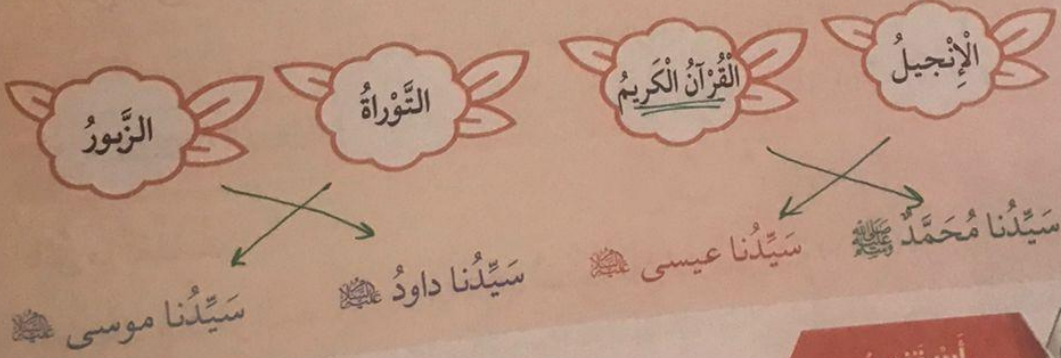 الْإِنْجيلُ
الْقُرْآنُ الْكَريمُ
التَّوْراةُ
الزَّبورُ
سَيِّدُنا مُحَمَّدٌ ﷺ
سَيِّدُنا عيسى عليه السلام
سَيِّدُنا داودُ عليه السلام
سَيِّدُنا موسى عليه السلام